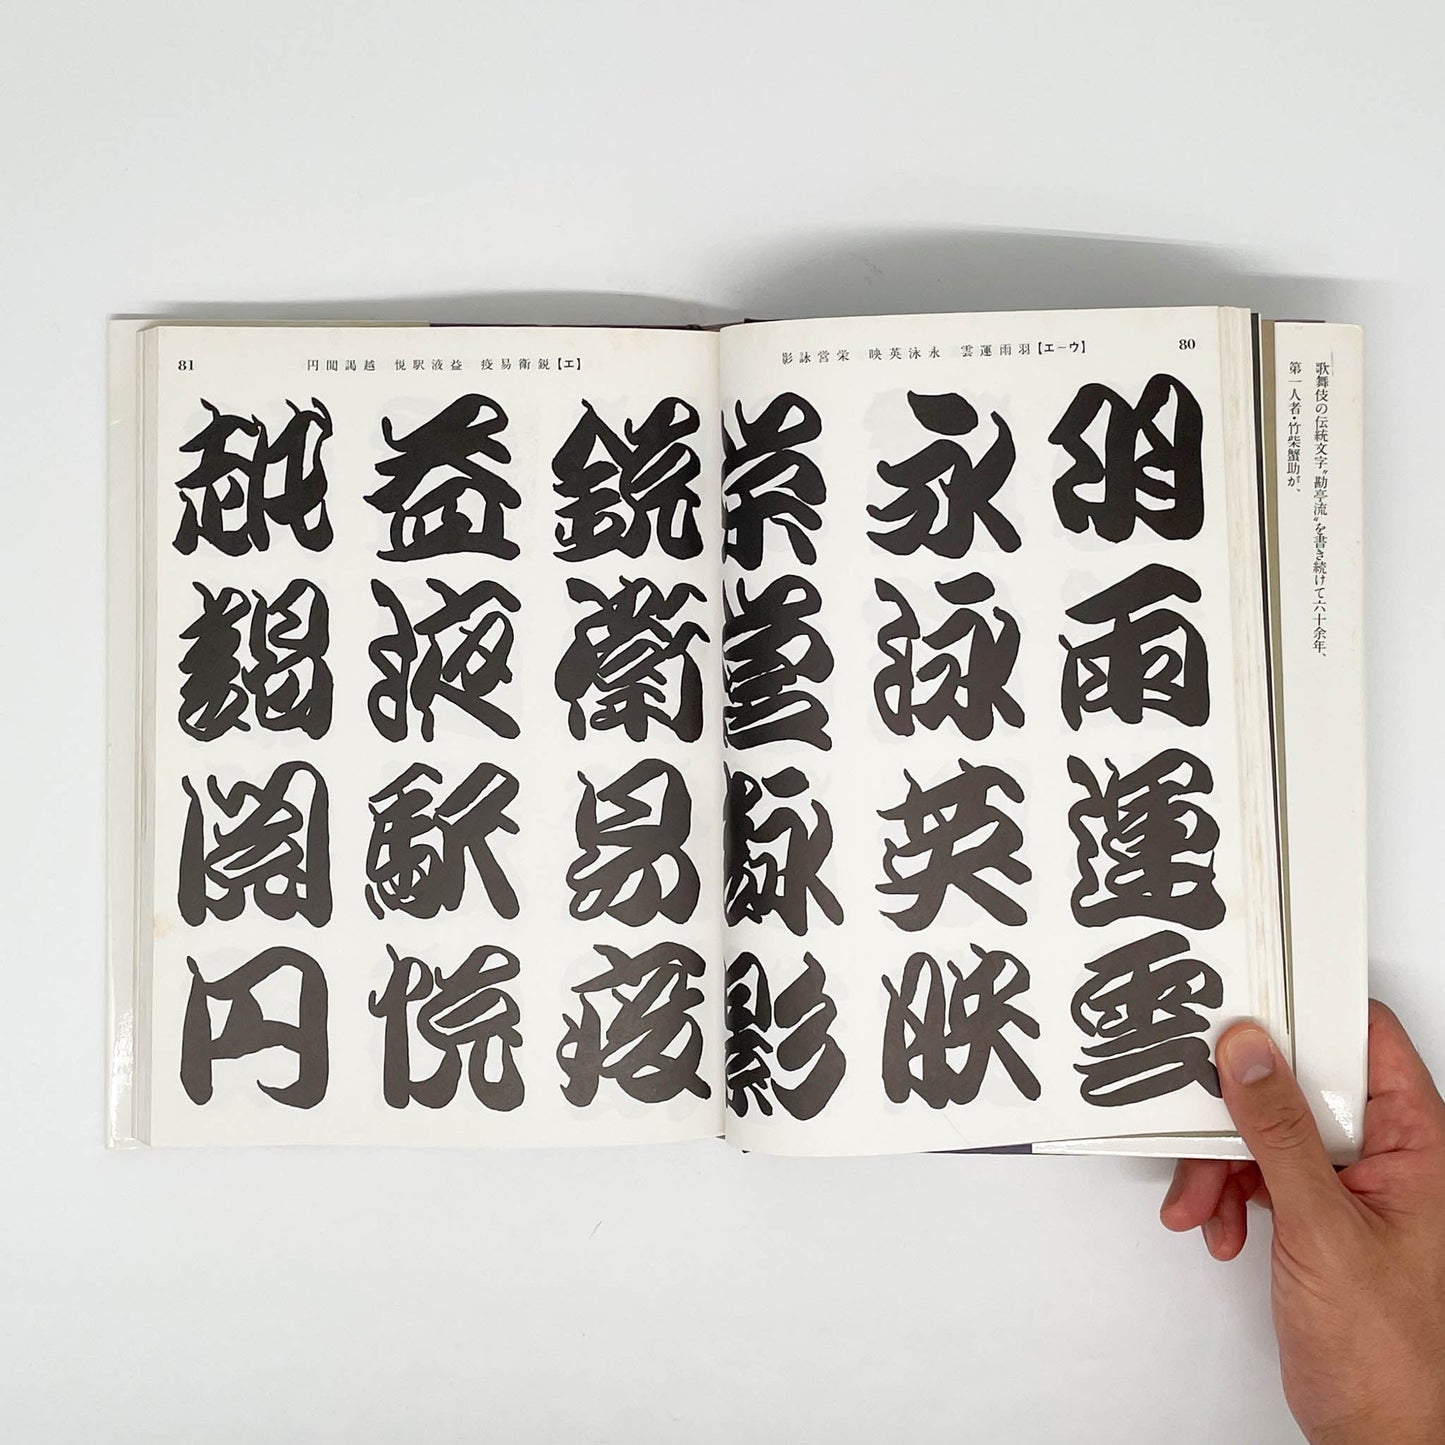 歌舞伎の伝統文字〝勘亭流〟を書き続けて六十余年、
第一人者・竹柴蟹助が、
80
【ウ―エ】羽雨運雲 永泳英映 栄営詠影
羽雨運雲
永泳英映
栄営詠影
81
【エ】鋭衛易疫 益液駅悦 越謁閲円
鋭衛易疫
益液駅悦
越謁閲円